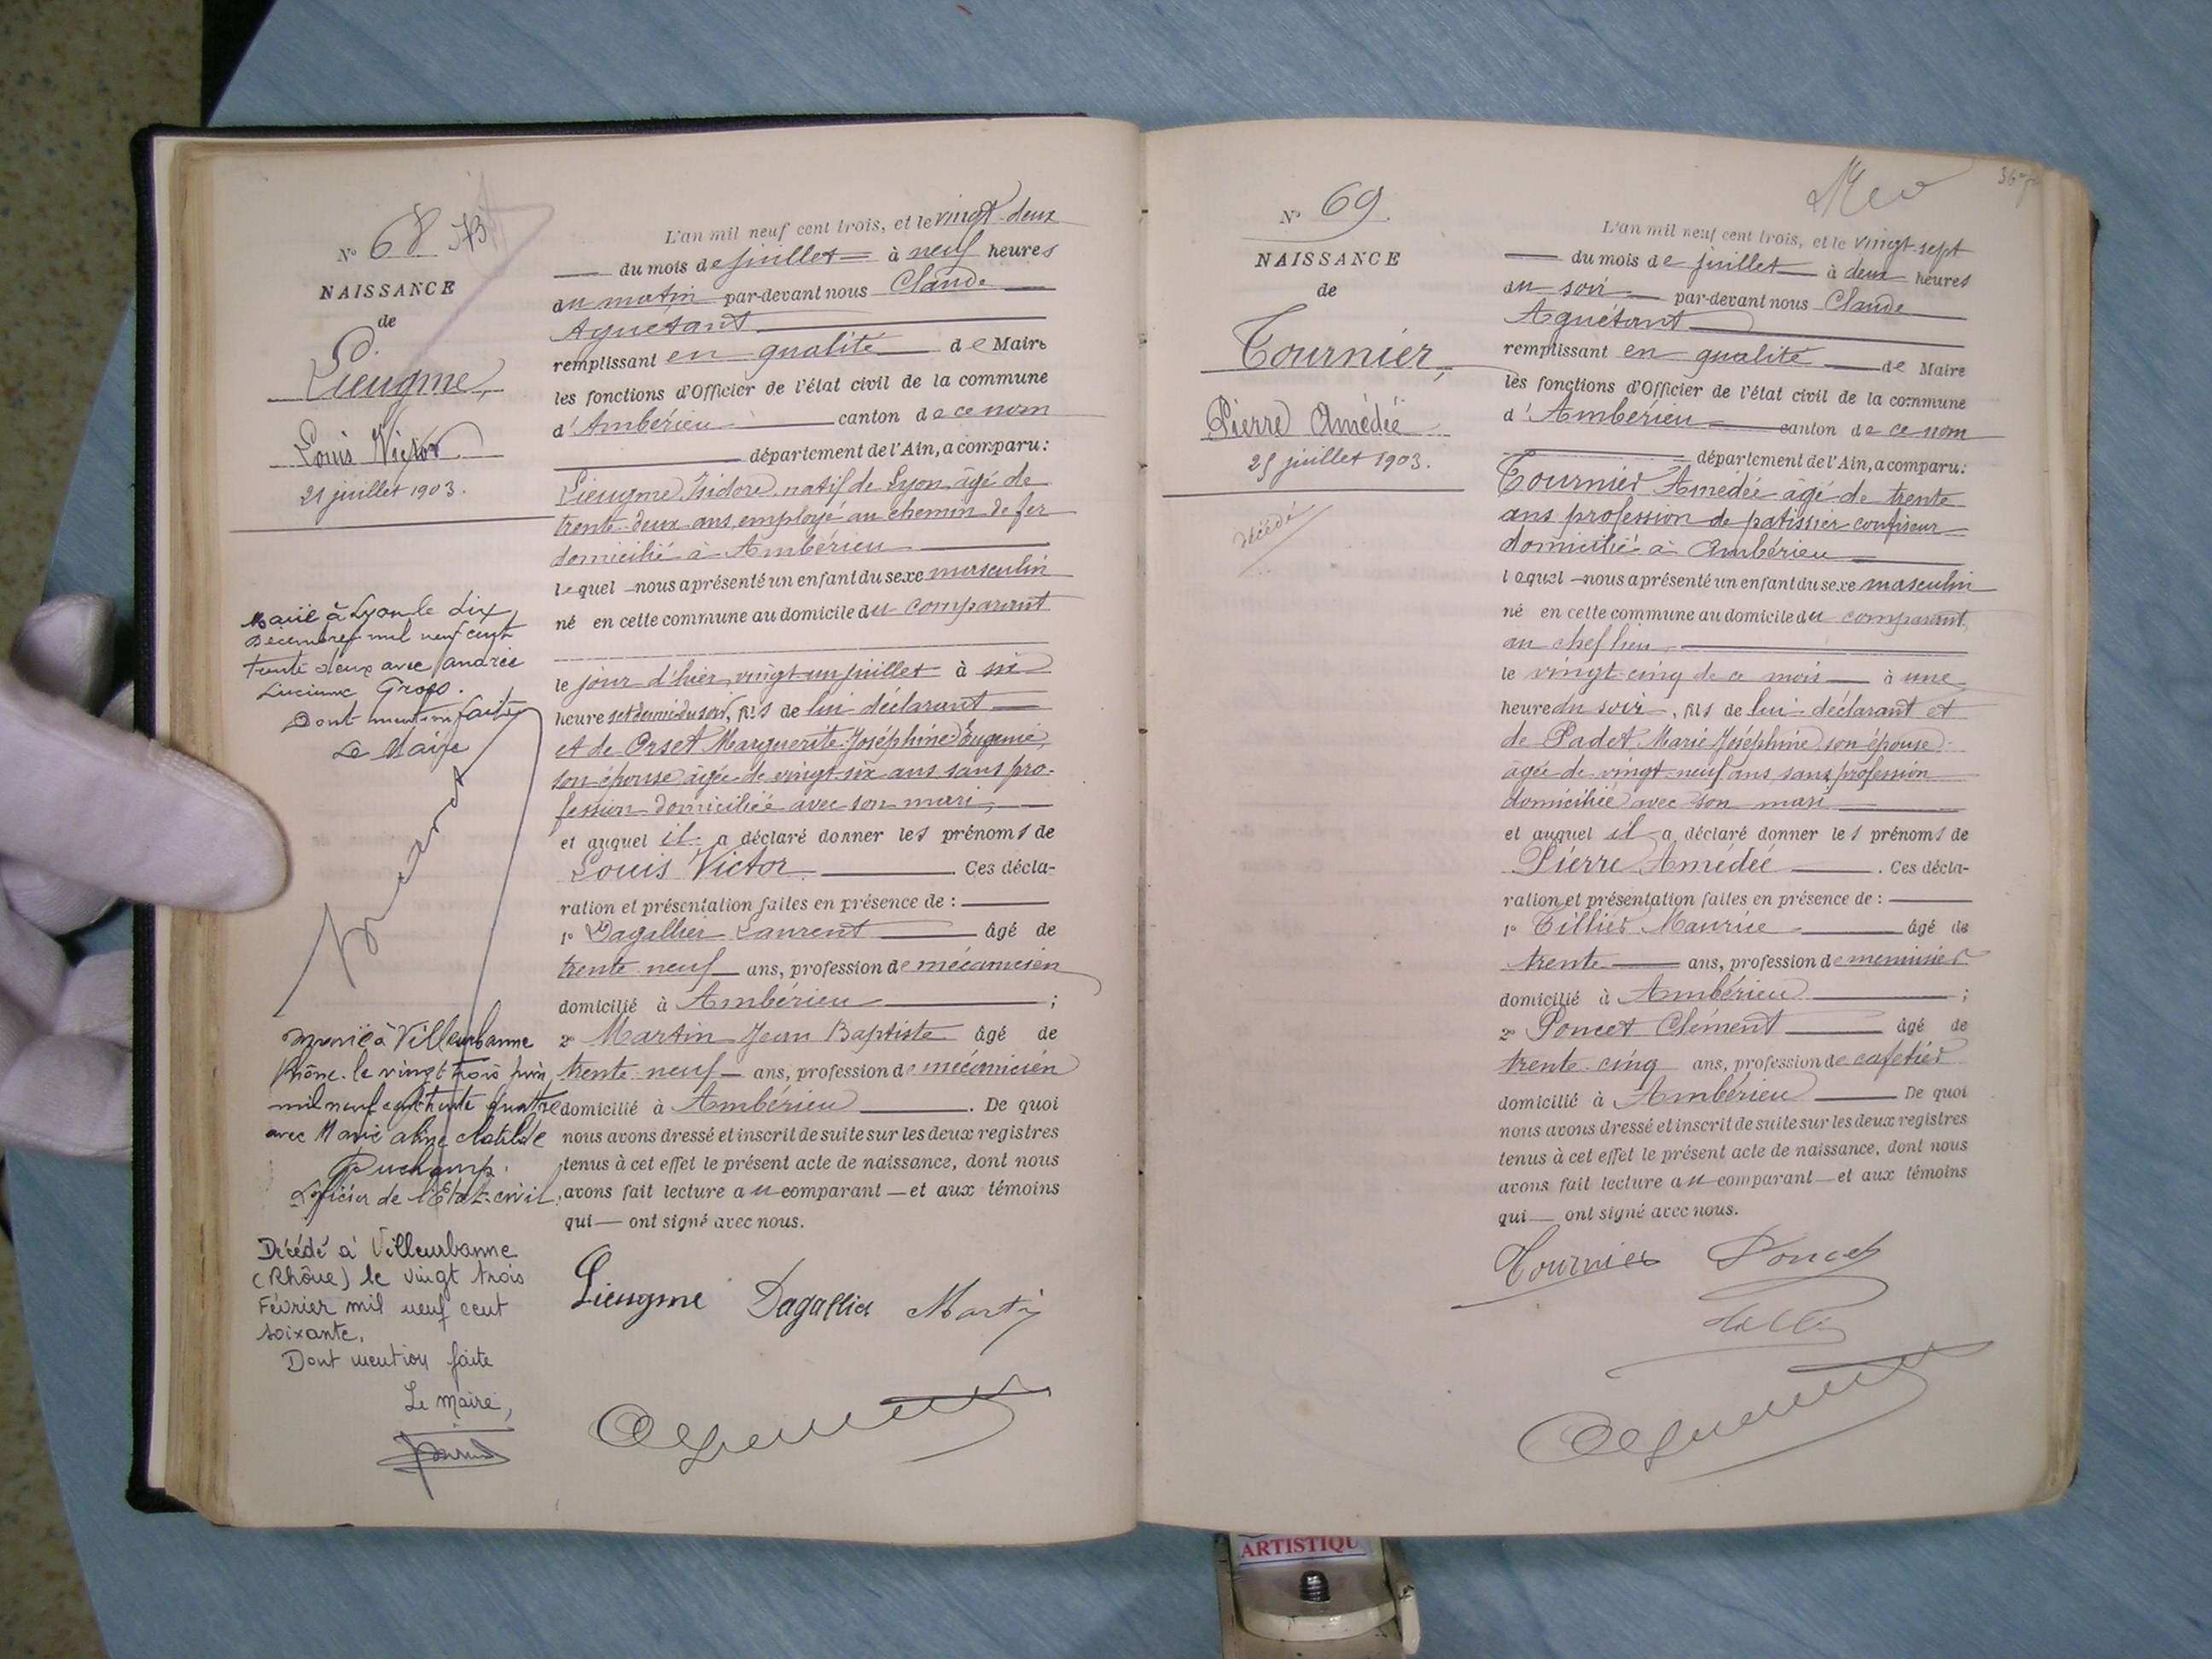 N° 68
NAISSANCE
de
Lieugme,
Louis Victor
21 juillet 1903.
Marié à Lyon le dix
Décembre mil neuf cent
trente deux avec Andrée
Lucienne Gros.
Dont mention faite
Le Maire
Marié à Villeurbanne
Rhône. le vingt trois juin
mil neuf cent trente quatre
avec Marie Aline Clotilde
Puchamp.
L'officier de l'Etat-civil.
Décédé à Villeurbanne
(Rhône) le vingt trois
Février mil neuf cent
soixante.
Dont mention faite
Le Maire,
L'an mil neuf cent trois, et le vingt-deux
du mois de juillet à neuf heures
du matin par-devant nous Claude
Aguétant
remplissant en qualité de Maire
les fonctions d'Officier de l'état civil de la commune
d'Ambérieu canton de ce nom
département de l'Ain, a comparu :
Lieugme Isidore natif de Lyon âgé de
trente-deux ans employé au chemin de fer
domicilié à Ambérieu
lequel nous a présenté un enfant du sexe masculin
né en cette commune au domicile du comparant
le jour d'hier vingt-un juillet à six
heures et demie du soir, fils de lui déclarant
et de Orset Marguerite Joséphine Eugénie,
son épouse âgée de vingt-six ans sans pro-
fession domiciliée avec son mari,
et auquel il a déclaré donner les prénoms de
Louis Victor. Ces décla-
ration et présentation faites en présence de :
1° Dagallier Laurent âgé de
trente neuf ans, profession de mécanicien
domicilié à Ambérieu ;
2° Martin Jean Baptiste âgé de
trente neuf ans, profession de mécanicien
domicilié à Ambérieu. De quoi
nous avons dressé et inscrit de suite sur les deux registres
tenus à cet effet le présent acte de naissance, dont nous
avons fait lecture au comparant et aux témoins
qui ont signé avec nous.
Lieugme Dagallier Martin
N° 69
NAISSANCE
de
Tournier,
Pierre Amédée
25 juillet 1903.
décédé
L'an mil neuf cent trois, et le vingt-sept
du mois de juillet à deux heures
du soir par-devant nous Claude
Aguétant
remplissant en qualité de Maire
les fonctions d'Officier de l'état civil de la commune
d'Ambérieu canton de ce nom
département de l'Ain, a comparu :
Tournier Amédée âgé de trente
ans profession de patissier confiseur
domicilié à Ambérieu
lequel nous a présenté un enfant du sexe masculin
né en cette commune au domicile du comparant,
au chef lieu
le vingt-cinq de ce mois à une
heure du soir, fils de lui déclarant et
de Padet Marie Joséphine son épouse
âgée de vingt-neuf ans, sans profession
domiciliée avec son mari
et auquel il a déclaré donner les prénoms de
Pierre Amédée. Ces décla-
ration et présentation faites en présence de :
1° Tillier Maurice âgé de
trente ans, profession de menuisier
domicilié à Ambérieu ;
2° Poncet Clément âgé de
trente-cinq ans, profession de cafetier
domicilié à Ambérieu De quoi
nous avons dressé et inscrit de suite sur les deux registres
tenus à cet effet le présent acte de naissance, dont nous
avons fait lecture au comparant et aux témoins
qui ont signé avec nous.
Tournier Poncet
ARTISTIQU